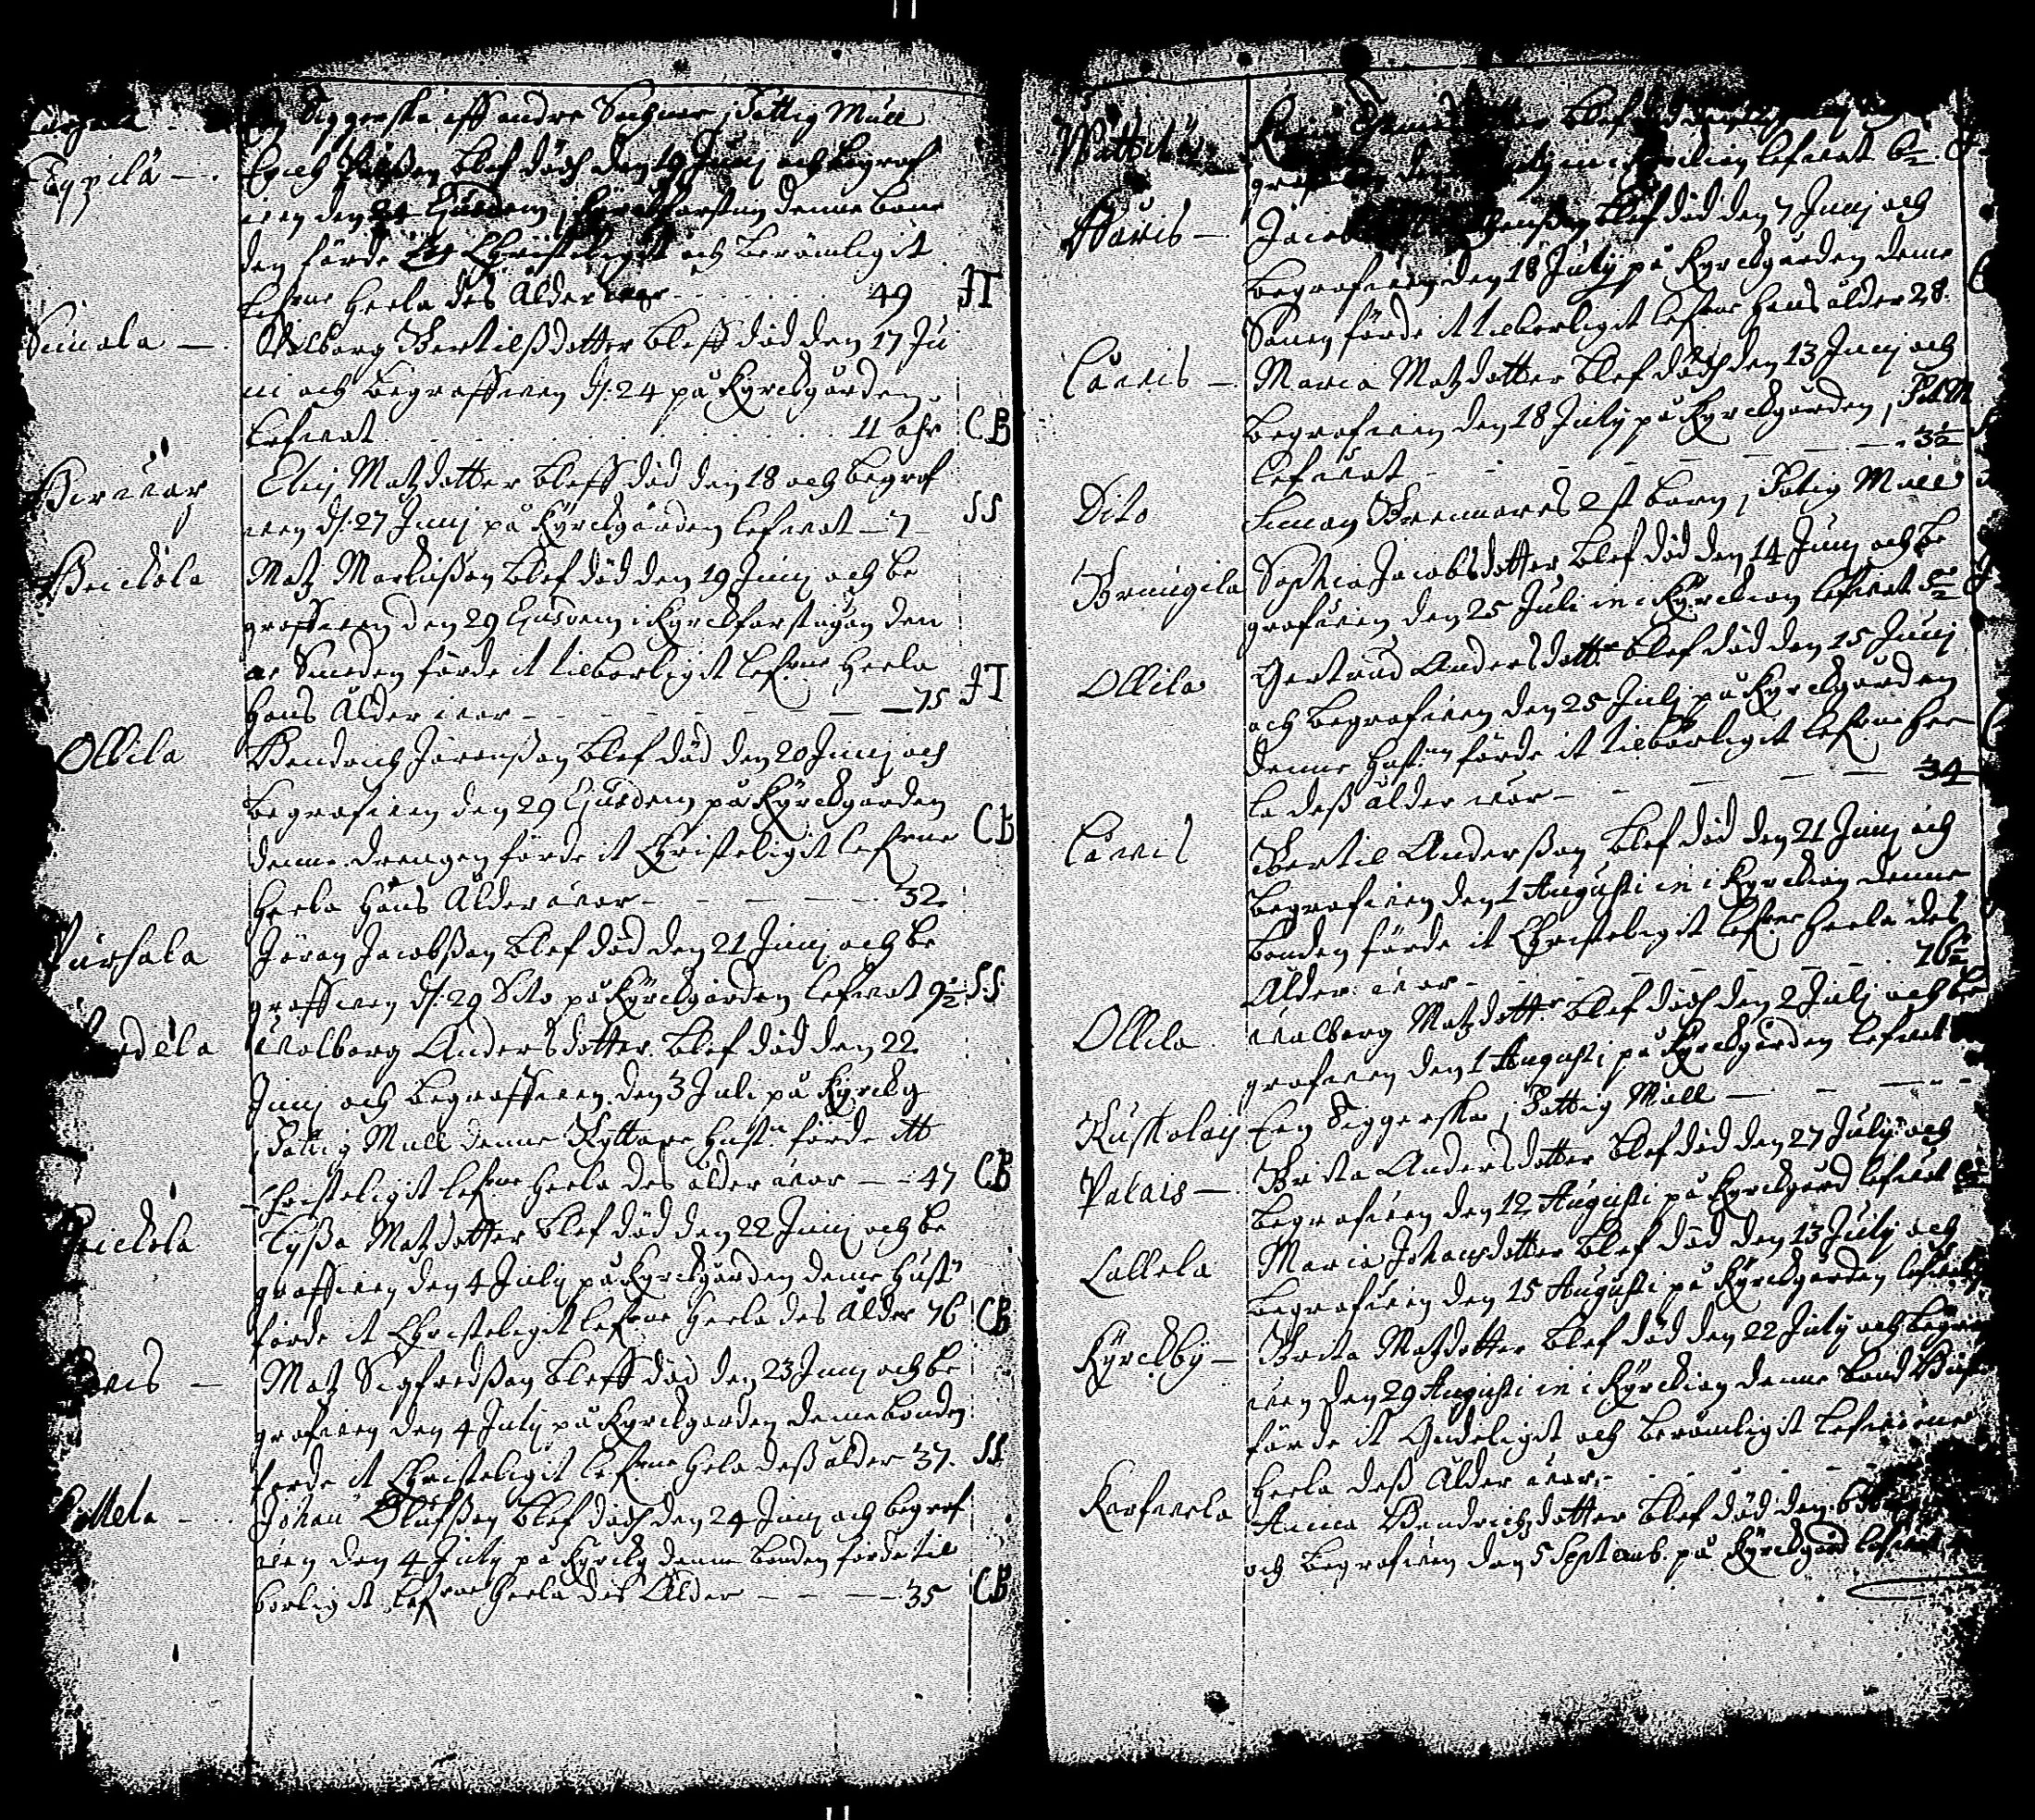 Tiggerska aff andra Sochnar j Fattig Mull
Eypilä - Erich Påĺßon Blef dödh den 19 Junij och begraf
wen den 24 Ejusdem j Kyrckforstun denne bon
den förde itt Christeligit och Berömligit
Lefrne Heela des Ålder war 49 JT
Simola - Walborg Bertilßdotter bleff död den 17 Ju
nij och begraffwen d. 24 på Kyrckgården
Lefwat 11 åhr CB
Hirwar Elin Matzdotter bleff död den 18 och begraf
wen d. 27 Junij på Kyrckgården lefwat - 7 SS
Beickola Matz Markusson blef död den 19 Junij och be
graffwen den 29 Ejusdem i Kyrckforstugan den
ne Smeden förde it tilbörligit Lefrne Heela
Hans Ålder war - 75 JT
Ollila Hendrich Jörensson blef död den 20 Junij och
begrafwen den 29 Ejusdem på Kyrckgården
denne drengen förde it Christeligit Lefrne CB
Heela Hans Ålder war - 32
Pursala Jöran Jacobsson blef död den 21 Junij och be
graffwen d. 29 Dito på Kyrckgården lefwat 9½ SS
Walborg Andersdotter blef död den 22
Junij och begraffwen den 3 Juli på Kyrckg
j Fattig Mull denne Ryttare Hust. förde itt
Christeligit Lefrne Heela des ålder war - 47 CB
Lyßa Matzdotter blef död den 22 Junij och be
graffwen den 4 Julij på Kyrckgården denne Hust
förde it Christeligit Lefrne Heela des Ålder 76 CB
Matz Sigfredsson bleff död den 23 Junij och be
grafwen den 4 Julij på Kyrckgården denne bonden
förde it Christeligit Lefrne Hela deß ålder 37 SS
Johan Olufsson blef dödh den 24 Junij och begraf
wen den 4 Julij på Kyrckg denne bonden förde til
börligit Lefrne Heela des Ålder - 35 CB
blef död
in i Kyrckian lefwat 6½
Jacob blef död den 7 Junij och
begrafwen den 18 Julij på Kyrckgården denne
Sonen förde it tilbörligit Lefrne Hans ålder 28
Cåwis - Maria Matzdotter blef dödh den 13 Junij och
begrafwen den 18 Julij på Kyrckgården j Fat M
Lefwat - 3½
Dito Simon Brennares 2 st barn j Fatig Mull
Brungila Sophia Jacobsdotter blef död den 14 Junij och be
grafwen den 25 Juli in i Kyrckian lefwat 5½
Ollila Gertrud Andersdotter blef död den 15 Junij
och begrafwen den 25 Julij på Kyrckgården
denne Hust. förde it tilbörligit Lefrne Hee
la deß ålder war - 34
Cåwis Bertil Andersson blef död den 21 Junij och
begrafwen den 1 Augusti in i Kyrckian denne
bonden förde it Christeligit Lefrne Heela des
Ålder war - 76½
Ollila Walborg Matzdotter blef dödh den 2 Julij och be
grafwen den 1 Augusti på Kyrckgården lefwat
Ruskolaij Een Tiggerska j Fattig Mull
Palais - Brita Andersdotter blef död den 27 Julij och
begrafwen den 12 Augusti på Kyrckgård lefwat
Lallela Maria Johansdotter blef död den 13 Julij och
begrafwen den 15 Augusti på Kyrckgården lefwat
Kyrckby - Brita Matzdotter blef död den 22 Julij och begraf
wen den 29 Augusti in i Kyrckian denne bond
förde it Gudeligit och berömligit Lefwerne
Heela deß Ålder war
Karfwela Anna Hendrichzdotter blef död den 6
och begrafwen den 5 Septemb. på Kyrckgård lefwat